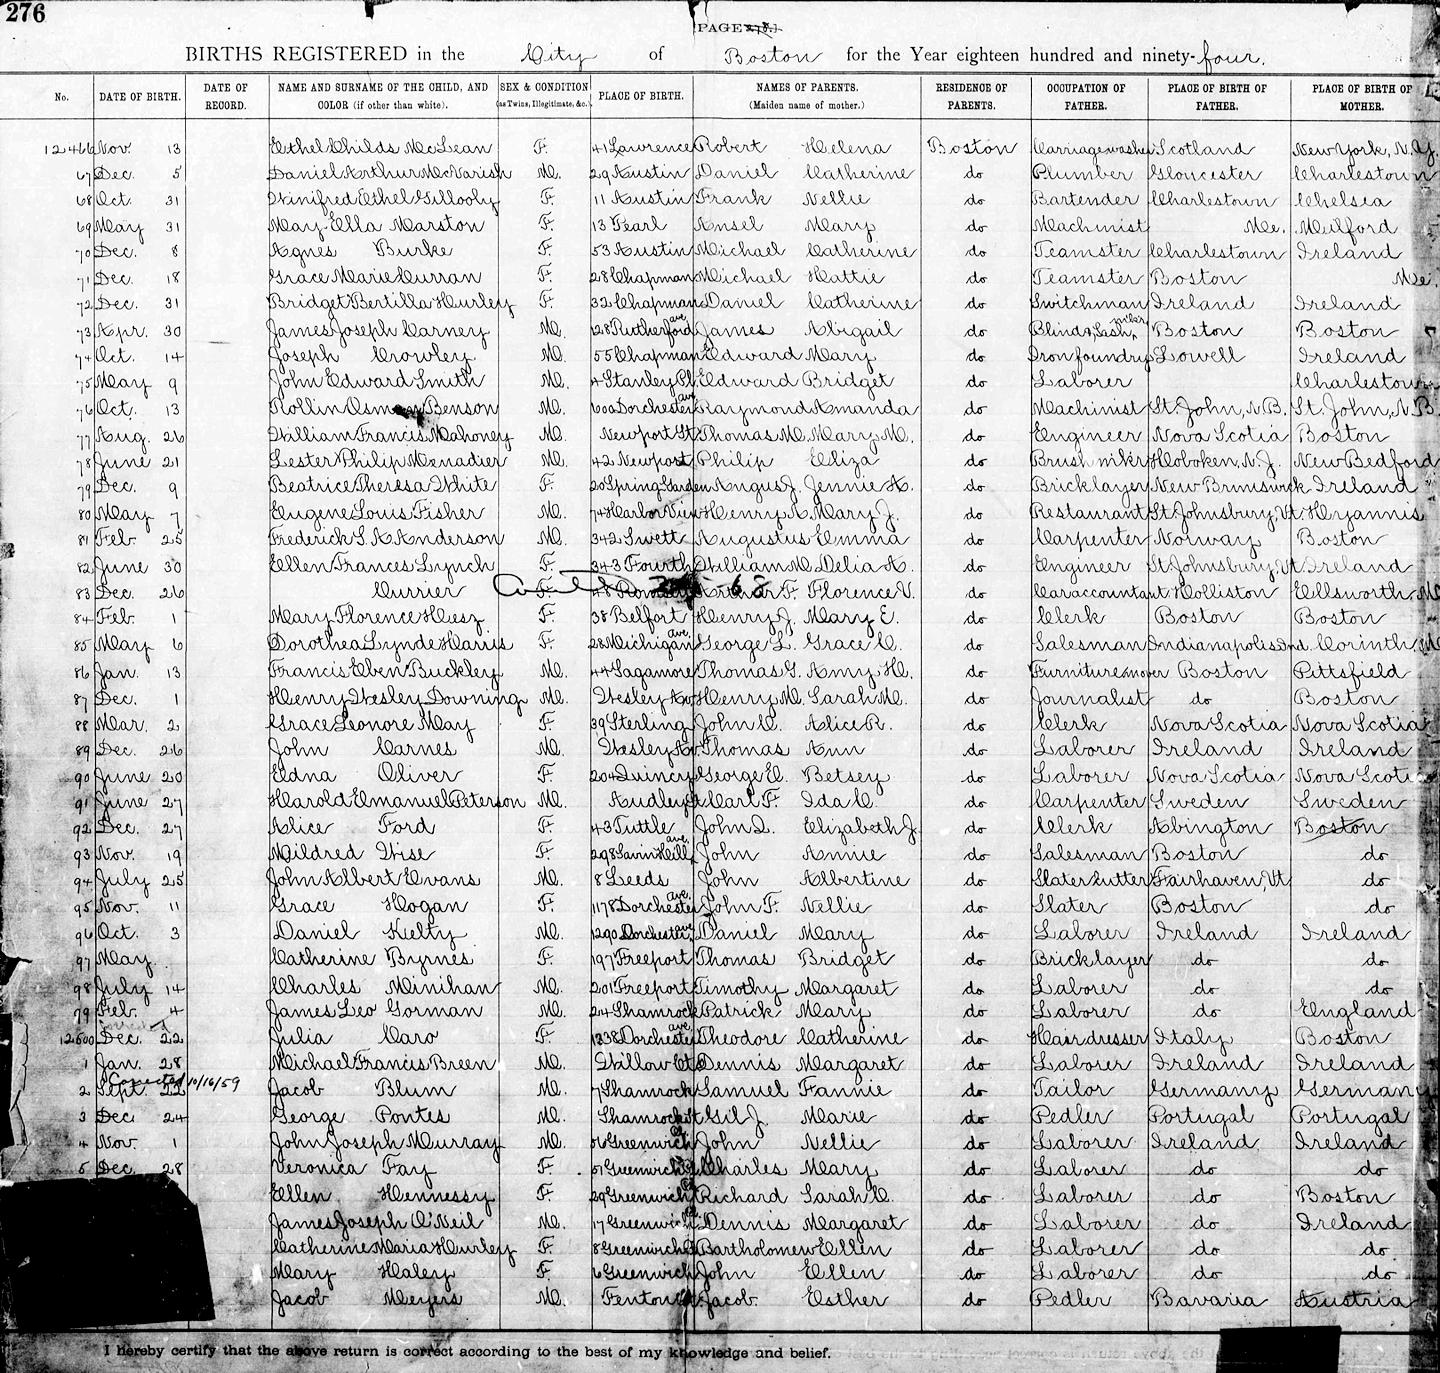 276
PAGE
BIRTHS REGISTERED in the City of Boston for the Year eighteen hundred and ninety-four.
No. DATE OF BIRTH. DATE OF RECORD. NAME AND SURNAME OF THE CHILD, AND COLOR (if other than white). SEX & CONDITION (as Twins, Illegitimate, &c.) PLACE OF BIRTH. NAMES OF PARENTS. (Maiden name of mother.) RESIDENCE OF PARENTS. OCCUPATION OF FATHER. PLACE OF BIRTH OF FATHER. PLACE OF BIRTH OF MOTHER.
12466 Nov. 13 Ethel Childs McLean F. 41 Lawrence Robert Helena Boston Carriagewasher Scotland New York, N.Y.
67 Dec. 5 Daniel Arthur McVarish M. 29 Austin Daniel Catherine do Plumber Gloucester Charlestown
68 Oct. 31 Winifred Ethel Gillooly F. 11 Austin Frank Nellie do Bartender Charlestown Chelsea
69 May 31 May Ella Marston F. 13 Pearl Ansel Mary do Machinist Me. Milford
70 Dec. 8 Agnes Burke F. 53 Austin Michael Catherine do Teamster Charlestown Ireland
71 Dec. 18 Grace Marie Curran F. 28 Chapman Michael Hattie do Teamster Boston Me.
72 Dec. 31 Bridget Bertilla Hurley F. 32 Chapman Daniel Catherine do Switchman Ireland Ireland
73 Apr. 30 James Joseph Carney M. 128 Rutherford ave. James Abigail do Blind & Sash mker Boston Boston
74 Oct. 14 Joseph Crowley M. 55 Chapman Edward Mary do Iron foundry Lowell Ireland
75 May 9 John Edward Smith M. 4 Stanley Pl. Edward Bridget do Laborer Charlestown
76 Oct. 13 Rollin Benson M. Dorchester ave. Raymond Amanda do Machinist St. John, N.B. St. John, N.B.
77 Aug. 26 William Francis Mahoney M. Newport St. Thomas M. Mary M. do Engineer Nova Scotia Boston
78 June 21 Lester Philip Menadier M. 42 Newport Philip Eliza do Brush mkr Hoboken, N.J. New Bedford
79 Dec. 9 Beatrice Theresa White F. 20 Spring Garden Angus J. Jennie A. do Bricklayer New Brunswick Ireland
80 May 7 Eugene Louis Fisher M. 74 Harbor View Henry A. Mary J. do Restaurant St Johnsbury, Vt. Hyannis
81 Feb. 25 Frederick G. A. Anderson M. 342 Swett Augustus Emma do Carpenter Norway Boston
82 June 30 Ellen Frances Lynch F. 343 Fourth William M. Delia A. do Engineer St Johnsbury, Vt. Ireland
83 Dec. 26 Currier F. 48 Romsey Arthur F. Florence V. do Car accountant Holliston Ellsworth, Me
84 Feb. 1 Mary Florence Hesz F. 38 Belfort Henry J. Mary E. do Clerk Boston Boston
85 May 6 Dorothea Lynde Harris F. 28 Michigan ave. George L. Grace C. do Salesman Indianapolis Ind. Corinth, M
86 Jan. 13 Francis Eben Buckley M. 44 Sagamore Thomas G. Amy H. do Furniture mover Boston Pittsfield
87 Dec. 1 Henry Wesley Downing M. Wesley Av. Henry M. Sarah M. do Journalist do Boston
88 Mar. 2 Grace Leonore May F. 39 Sterling John C. Alice R. do Clerk Nova Scotia Nova Scotia
89 Dec. 26 John Carnes M. Wesley Av. Thomas Ann do Laborer Ireland Ireland
90 June 20 Edna Oliver F. 204 Quincy George E. Betsey do Laborer Nova Scotia Nova Scotia
91 June 27 Harold Emanuel Peterson M. Audley St Carl F. Ida C. do Carpenter Sweden Sweden
92 Dec. 27 Alice Ford F. 43 Tuttle John Q. Elizabeth J. do Clerk Abington Boston
93 Nov. 19 Mildred Wise F. 298 Savin Hill ave. John Annie do Salesman Boston do
94 July 25 John Albert Evans M. 8 Leeds John Albertine do Slater Cutter Fairhaven, Vt do
95 Nov. 11 Grace Hogan F. 1178 Dorchester ave. John F. Nellie do Slater Boston do
96 Oct. 3 Daniel Kelty M. 1290 Dorchester ave. Daniel Mary do Laborer Ireland Ireland
97 May Catherine Byrnes F. 197 Freeport Thomas Bridget do Bricklayer do do
98 July 14 Charles Minihan M. 201 Freeport Timothy Margaret do Laborer do do
99 Feb. 4 James Leo Gorman M. 24 Shamrock Patrick Mary do Laborer do England
12500 Dec. 22 Julia Caro F. 1338 Dorchester ave. Theodore Catherine do Hairdresser Italy Boston
1 Jan. 28 Michael Francis Breen M. Willow Ct. Dennis Margaret do Laborer Ireland Ireland
Corrected 10/16/59
2 Sept. 22 Jacob Blum M. 7 Shamrock Samuel Fannie do Tailor Germany Germany
3 Dec 24 George Pontes M. Shamrock St Gil J. Marie do Pedler Portugal Portugal
4 Nov. 1 John Joseph Murray M. Greenwich John Nellie do Laborer Ireland Ireland
5 Dec 28 Veronica Fay F. Greenwich Charles Mary do Laborer do do
Ellen Hennessy F. 29 Greenwich Richard Sarah C. do Laborer do Boston
James Joseph O'Neil M. 17 Greenwich Dennis Margaret do Laborer do Ireland
Catherine Maria Hurley F. 8 Greenwich Bartholomew Ellen do Laborer do do
Mary Haley F. 6 Greenwich John Ellen do Laborer do do
Jacob Meyers M. Fenton Jacob Esther do Pedler Bavaria Austria
I hereby certify that the above return is correct according to the best of my knowledge and belief.